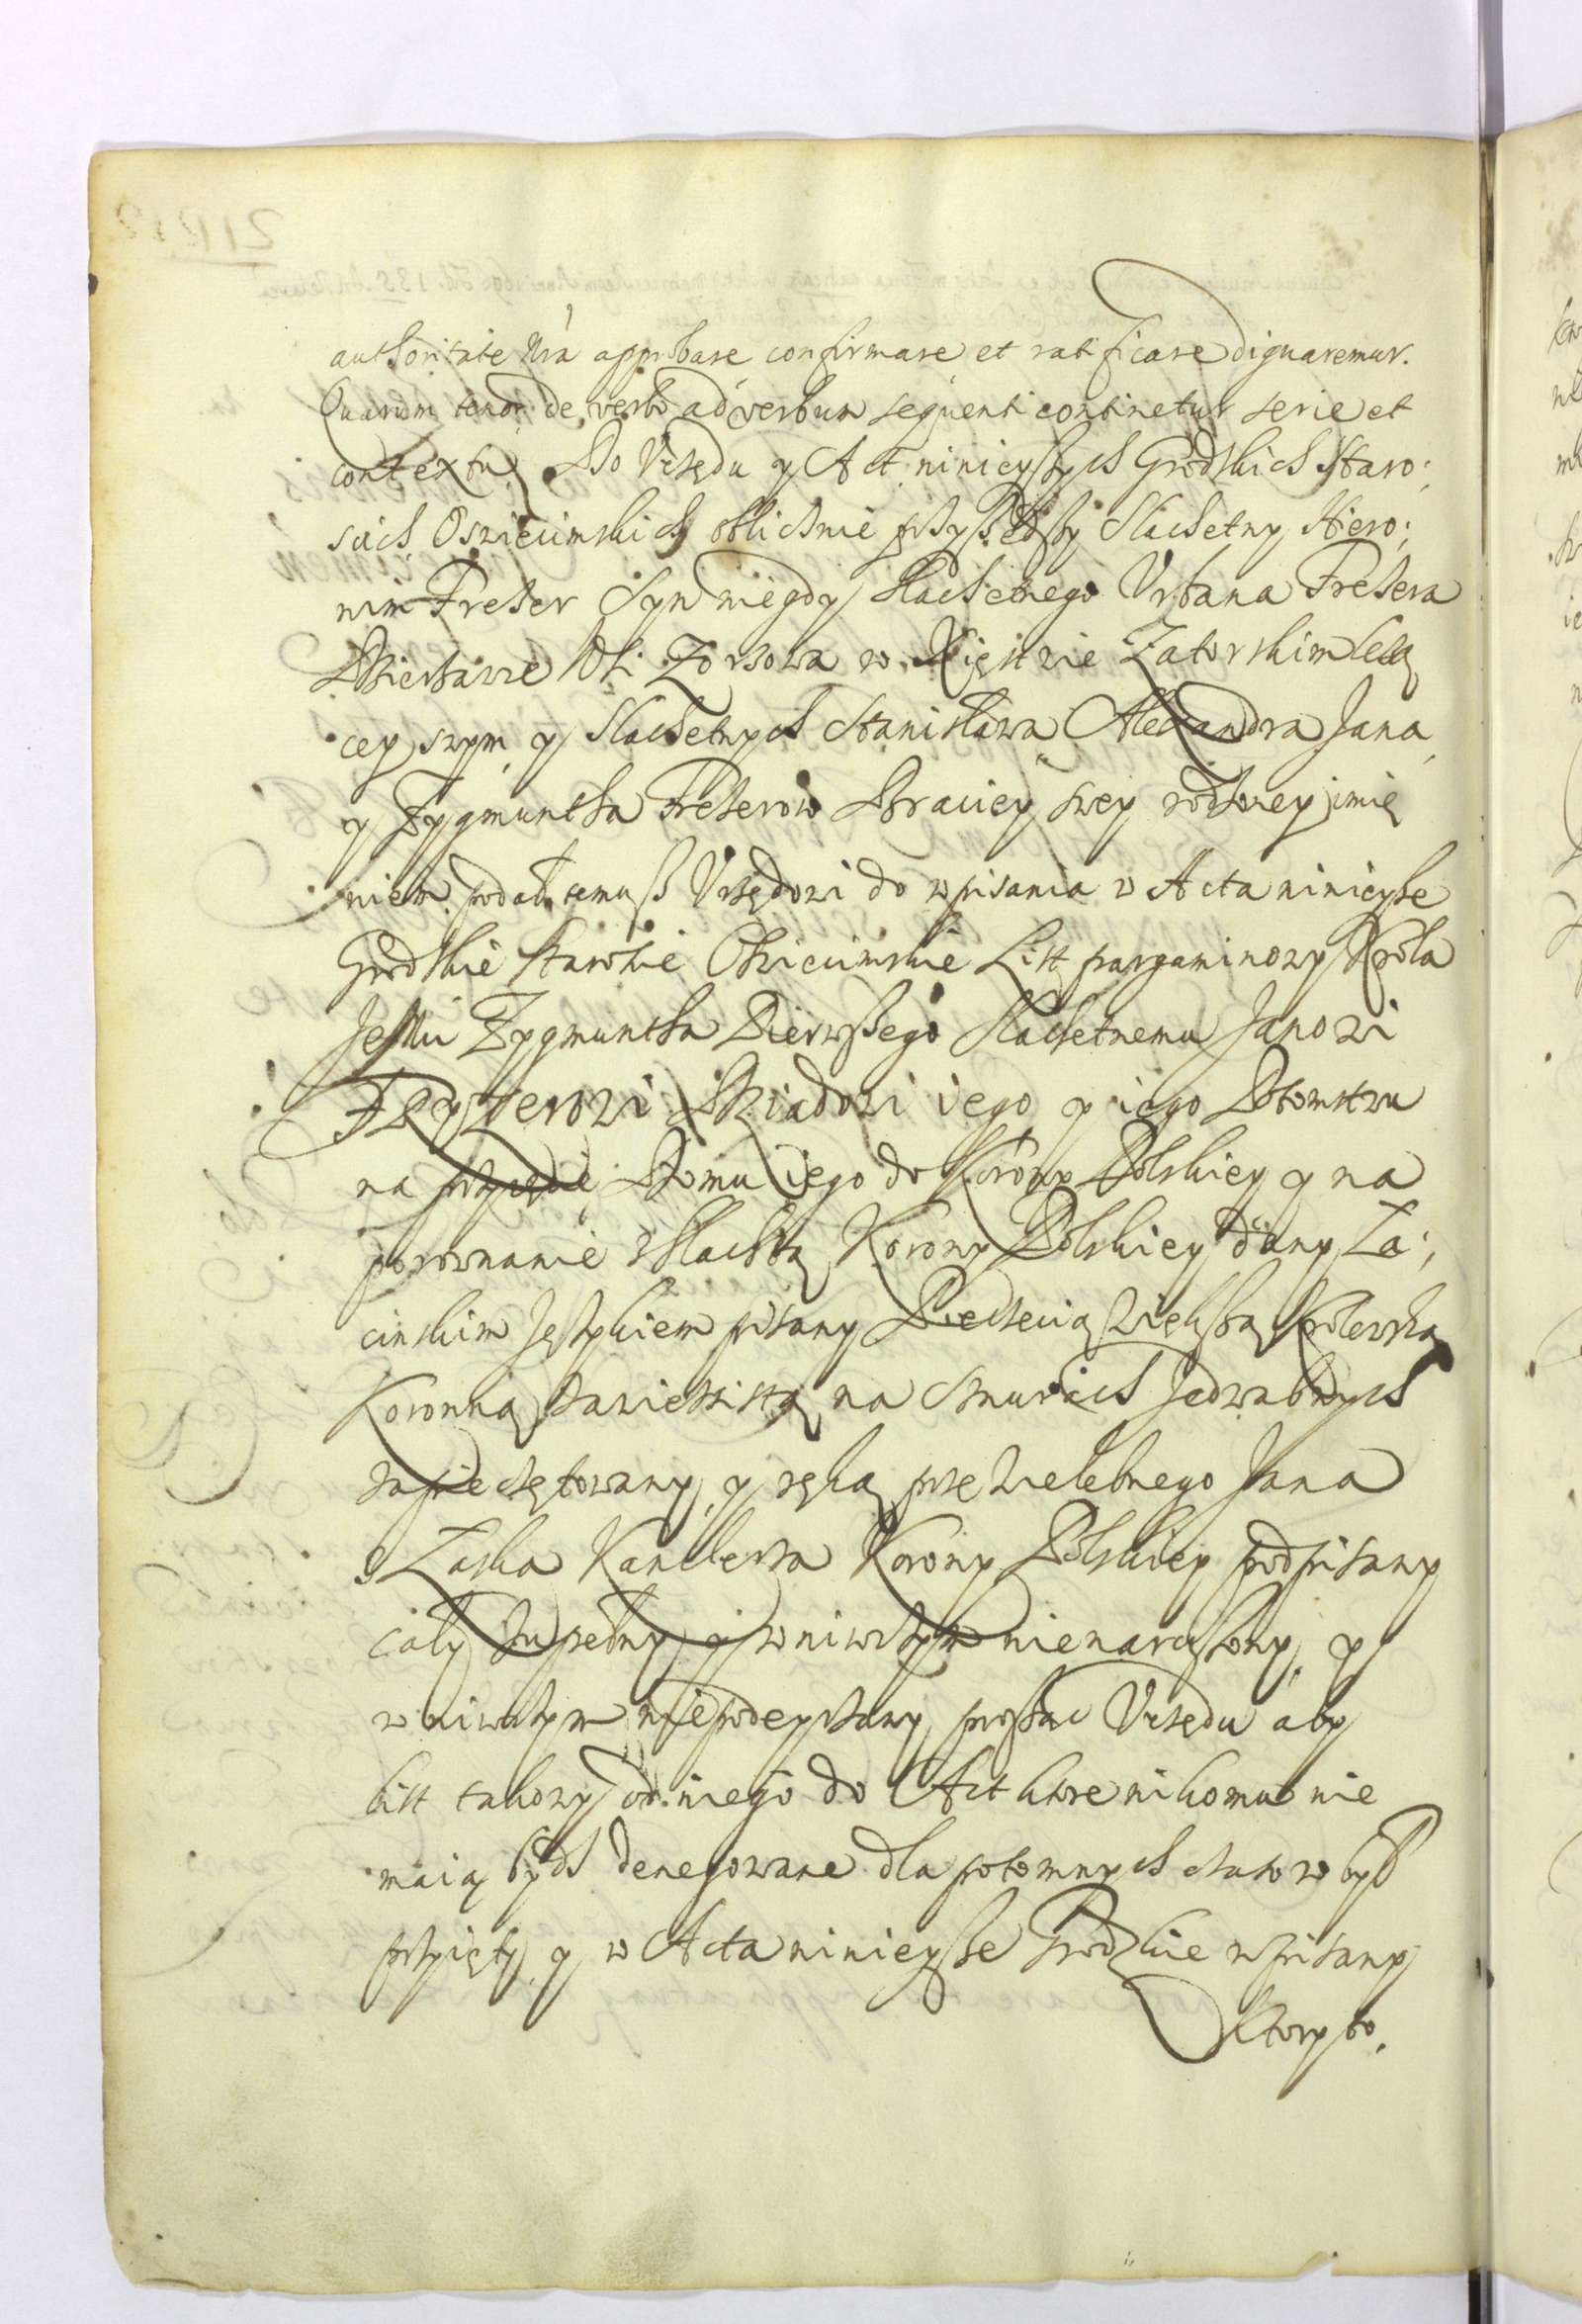 authoritate Nrã approbare confirmare et ratificare dignaremur.
Quarum tenor de verbo ad verbum sequenti continetur serie et
contextu. Do Vrzędu y Act ninieyszych Grodskich Staro:
scich Oswiecimskich oblicznie przyszedszy Slachetny Hiero:
nim Frezer Syn niegdy slachetnego Vrbana Frezera
Dziedzica w Xięstwie Zatorskim leżą
cey swym y Slachetnych Stanisława Alexandra Jana
y Zygmuntha Frezerow Braciey swey rodzoney imie
niem podał temusz Vrzędowi do wpisania w Acta ninieysze
Grodskie Staroskie Oswiecimskie List pargaminowy Krola
Je Mci Zygmuntha Pierwszego Slachetnemu Janowi
Frezerowi Dziadowi iego y iego Potomstwu
na przyięcie Domu iego do Korony Polskiey y na
porownanie z Slachtą Korony Polskiey dany Ła:
cinskim Językiem pisany Pieczecią Wielką Krolewską
Koronną zawiesistą na sznurach Jedwabnych
zapieczętowany y ręką przewielebnego Jana
z Łaska Kanclerza Korony Polskiey podpisany
cały zupełny y w niwczym nienaruszony y
w niwczym niepodeyrzany prosząc Vrzędu aby
list takowy od niego do Act ktore nikomu nie
maią bydz denegowane dla potomnych czasow był
przyięty y w Acta ninieysze Grodzkie wpisany
Ktory to.